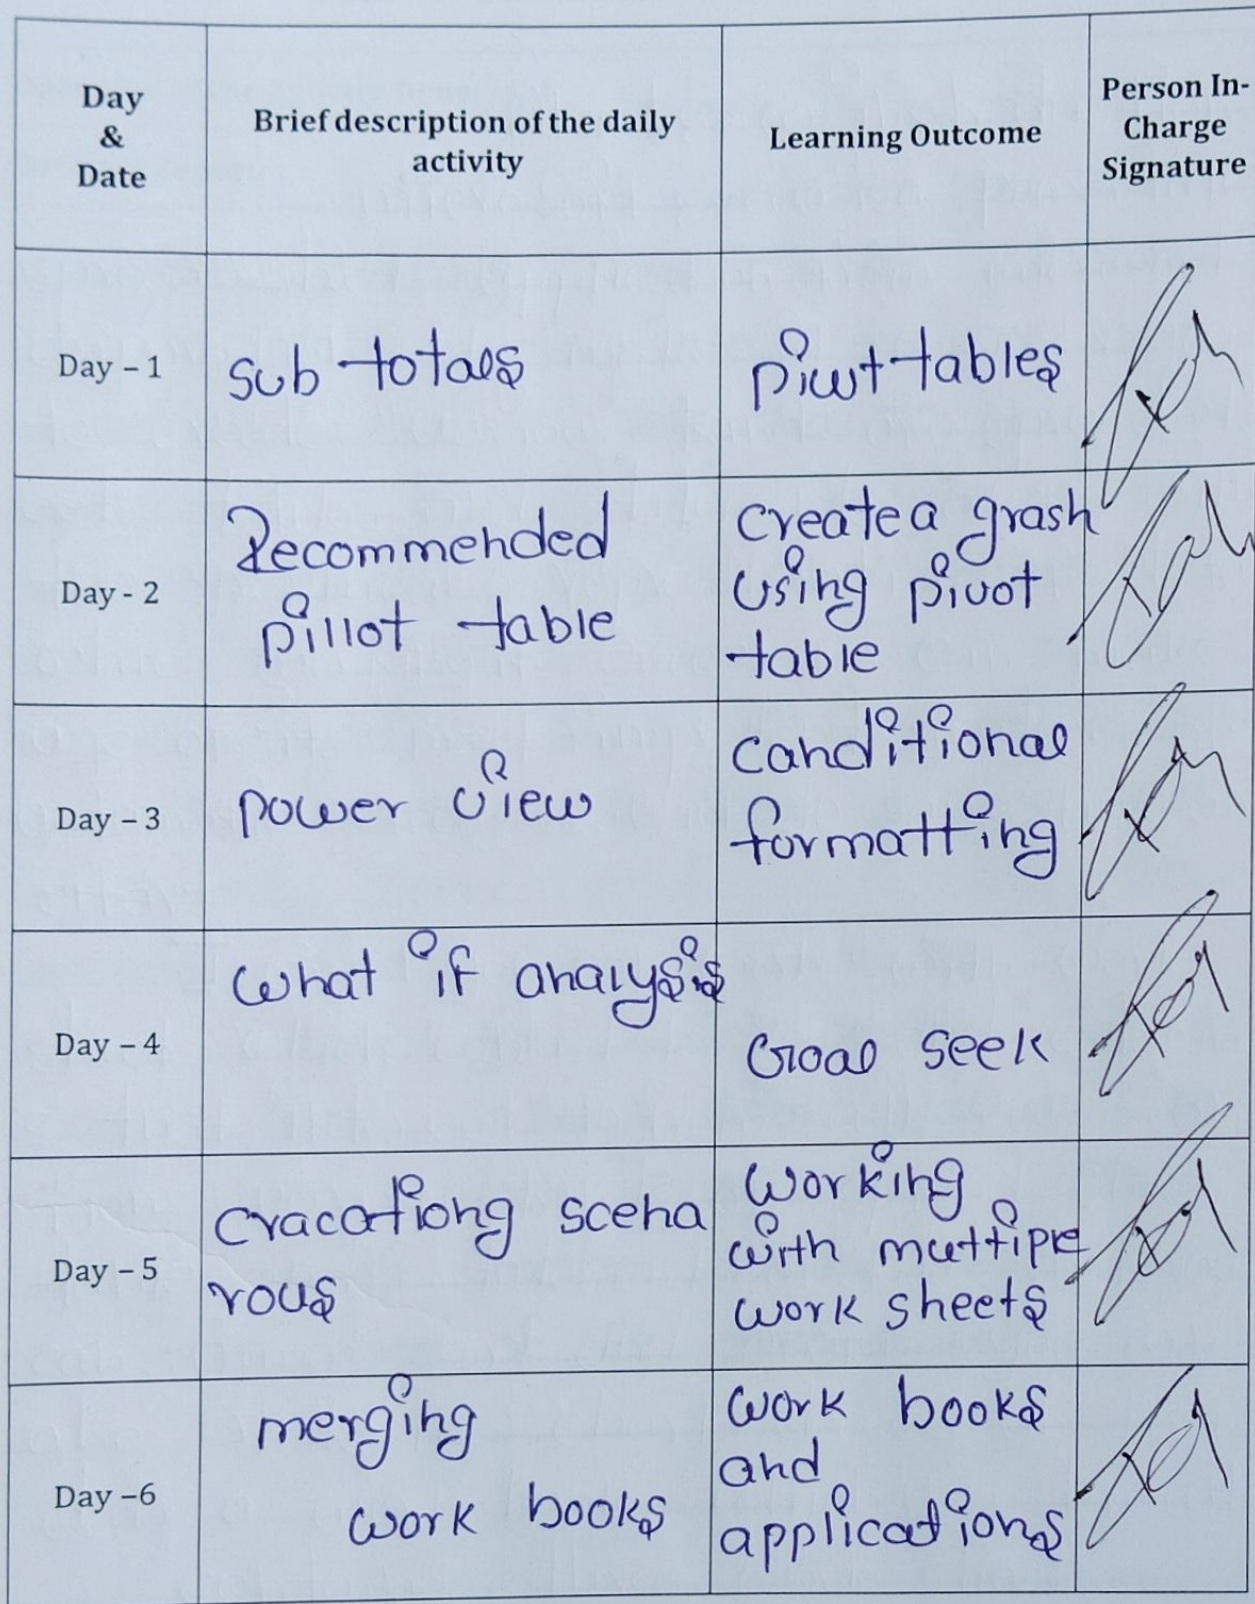 Day
&
Date
Brief description of the daily
activity
Learning Outcome
Person In-
Charge
Signature
Day – 1
sub totals
Pivot tables
Day - 2
Recommended
pillot table
Create a grash
using pivot
table
Day – 3
power view
Canditional
formatting
Day – 4
what if analysis
Goal seek
Day – 5
cracationg scena
rous
Working
with muttiple
work sheets
Day –6
merging
work books
work books
and
applications